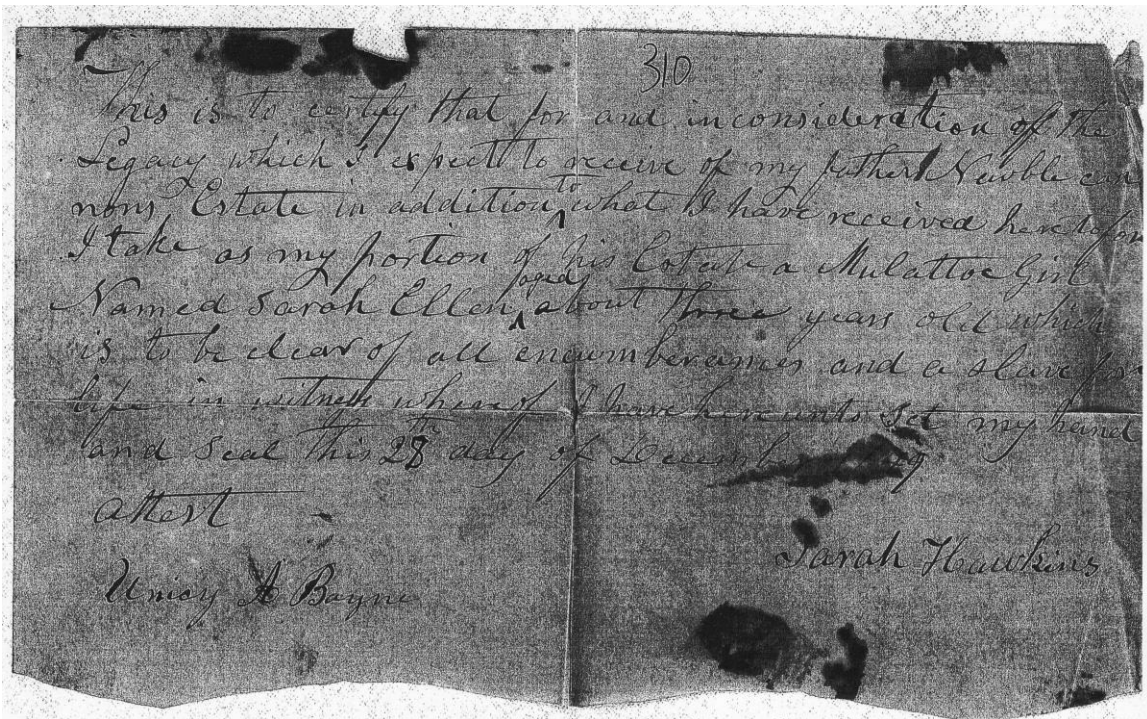 310
This is to certify that for and in consideration of the
Legacy which I expect to receive of my father
nons Estate in addition to what I have received heretofor
I take as my portion of his Estate a Mulattoe Girl
Named Sarah Ellen aged about three years old which
is to be clear of all encumberances and a slave for
life in witness whereof I have hereunto set my hand
and seal this 28th day of December
attest
Sarah Hawkins
A Bayne